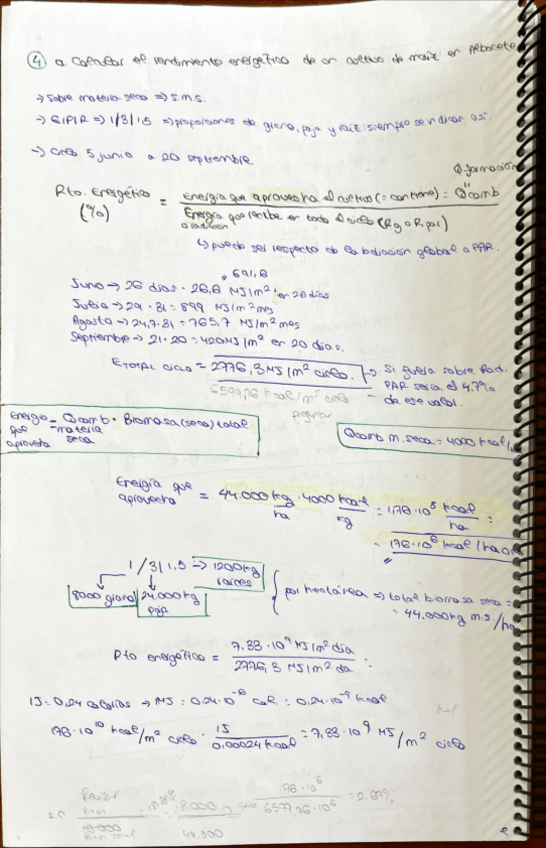 ④ a. Calcular el rendimiento energético de un cultivo de maíz en Albacete
→ Sobre materia seca ⇒ s.m.s.
→ G/P/R ⇒ 1/3/1,5 ⇒ proporciones de grano, paja y raíz: siempre se indican así.
→ Ciclo 5 junio a 20 septiembre
Q formación
Rto. Energético = Energía que aprovecha el cultivo (= contiene) = Qcomb
(%) Energía que recibe en todo el ciclo (Rg o R. par)
↳ puede ser respecto de la radiación global o PAR.
691,6
Junio → 26 días · 26,6 MJ/m² en 26 días
Julio → 29 · 31 = 899 MJ/m² mes
Agosto → 24,7 · 31 = 765,7 MJ/m² mes
Septiembre → 21 · 20 = 420 MJ/m² en 20 días.
ETOTAL ciclo = 2776,3 MJ/m² ciclo. → Si fuera sobre Rad. PAR sería el 47% de ese valor.
kcal/m² ciclo
Energía que aprovecha = Qcomb materia seca · Biomasa (seca) total
Qcomb m. seca = 4000 kcal/
Energía que aprovecha = 44.000 kg/ha · 4000 kcal/kg = 1,76 · 10⁸ kcal/ha =
= 176 · 10⁶ kcal/ha
1/3/1,5 → 12000 kg raíces
8000 grano 24.000 kg paja
{ por hectárea ⇒ total biomasa seca =
= 44.000 kg m.s/ha
Rto energético = 7,33 · 10⁹ MJ/m² día / 2776,3 MJ/m² día =
1J = 0,24 calorías → MJ = 0,24 · 10⁻⁶ cal = 0,24 · 10⁻⁹ kcal
176 · 10¹⁰ kcal/m² ciclo · 1J / 0,00024 kcal = 7,33 · 10⁹ MJ/m² ciclo
176 · 10⁶
8.000 kg
= 2,67%
44.000